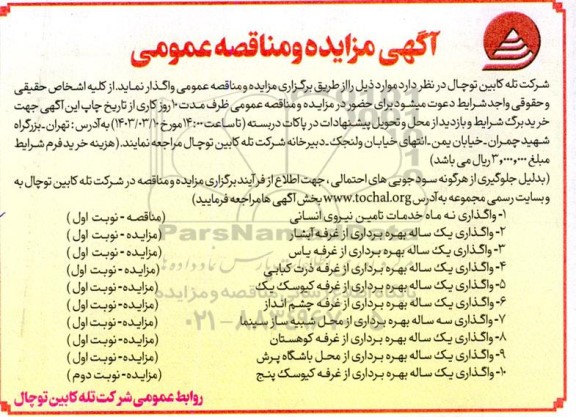 آگهی مزایده و مناقصه عمومی
شرکت تله کابین توچال در نظر دارد موارد ذیل را از طریق برگزاری مزایده و مناقصه عمومی واگذار نماید. از کلیه اشخاص حقیقی
و حقوقی واجد شرایط دعوت میشود برای حضور در مزایده و مناقصه عمومی ظرف مدت ۱۰ روز کاری از تاریخ چاپ این آگهی جهت
خرید برگ شرایط و بازدید از محل و تحویل پیشنهادات در پاکات دربسته (تا ساعت ۱۴:۰۰ مورخ ۱۴۰۳/۰۳/۱۰) به آدرس: تهران-بزرگراه
شهید چمران-خیابان یمن-انتهای خیابان ولنجک-دبیرخانه شرکت تله کابین توچال مراجعه نمایند. (هزینه خرید فرم شرایط
مبلغ ۳,۰۰۰,۰۰۰ ریال می باشد)
(بدلیل جلوگیری از هرگونه سودجویی های احتمالی، جهت اطلاع از فرآیند برگزاری مزایده و مناقصه در شرکت تله کابین توچال به
وبسایت رسمی مجموعه به آدرس www.tochal.org بخش آگهی ها مراجعه فرمایید)
۱-واگذاری نه ماه خدمات تامین نیروی انسانی (مناقصه-نوبت اول)
۲-واگذاری یک ساله بهره برداری از غرفه آبشار (مزایده-نوبت اول)
۳-واگذاری یک ساله بهره برداری از غرفه یاس (مزایده-نوبت اول)
۴-واگذاری یک ساله بهره برداری از غرفه ذرت کبابی (مزایده-نوبت اول)
۵-واگذاری یک ساله بهره برداری از غرفه کیوسک یک (مزایده-نوبت اول)
۶-واگذاری یک ساله بهره برداری از غرفه چشم انداز (مزایده-نوبت اول)
۷-واگذاری سه ساله بهره برداری از محل شبیه ساز سینما (مزایده-نوبت اول)
۸-واگذاری یک ساله بهره برداری از غرفه کوهستان (مزایده-نوبت اول)
۹-واگذاری یک ساله بهره برداری از محل باشگاه پرش (مزایده-نوبت اول)
۱۰-واگذاری یک ساله بهره برداری از غرفه کیوسک پنج (مزایده-نوبت دوم)
روابط عمومی شرکت تله کابین توچال
ParsNamadData
۰۲۱-۸۸۳۴۹۶۷۰-۵